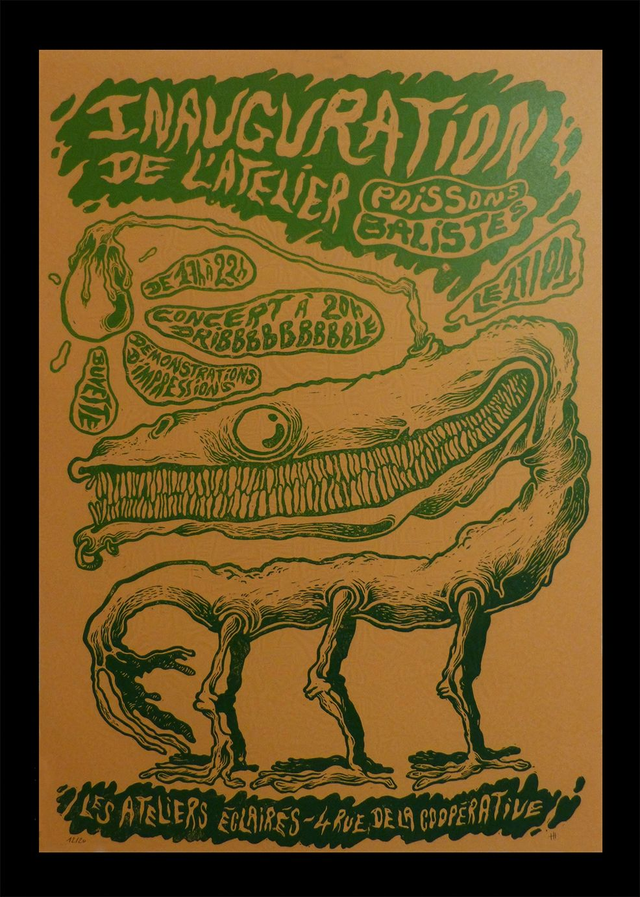 INAUGURATION
DE L'ATELIER
POISSONS
BALISTES
LE 17/01
DE 17H À 22H
CONCERT À 20H
DRIBBBBBBBBBLE
DÉMONSTRATIONS
D'IMPRESSIONS
BUVETTE
LES ATELIERS ÉCLAIRÉS ~ 4 RUE DE LA COOPÉRATIVE